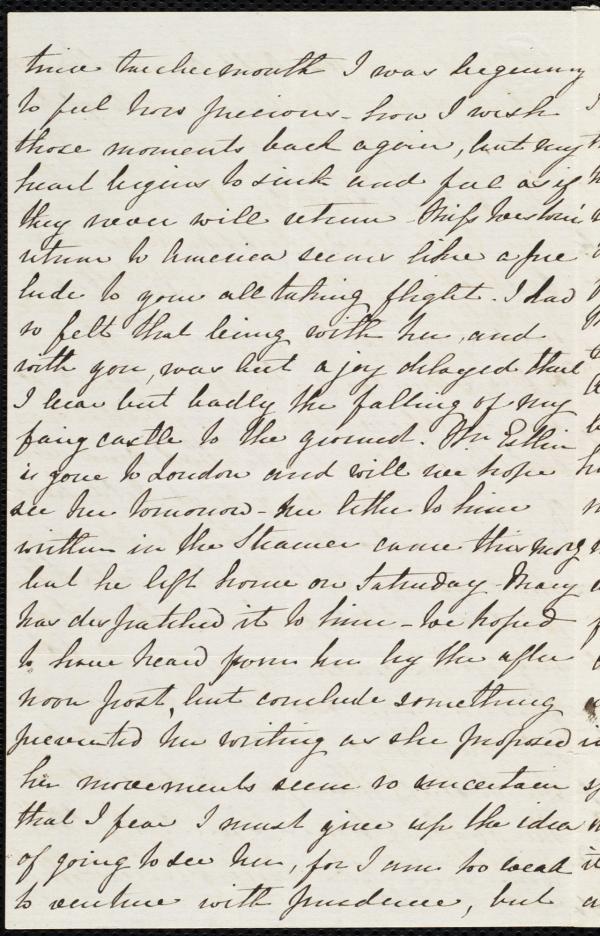 time twelvemonth I was beginning
to feel how precious - how I wish
those moments back again, but my
heart begins to sink and feel as if
they never will return - Miss Weston's
return to America seems like a pre
lude to your all taking flight. I had
so felt that being with her, and
with you, was but a joy delayed that
I bear but badly the falling of my
fairy castle to the ground. Mr Estlin
is gone to London and will we hope
see her tomorrow - her letter to him
written in the Steamer came this morg
but he left home on Saturday - Mary
has despatched it to him - We hoped
to have heard from her by the after
noon post, but conclude something
prevented her writing as she proposed
her movements seem so uncertain
that I fear I must give up the idea
of going to see her, for I am too weak
to venture with prudence, but